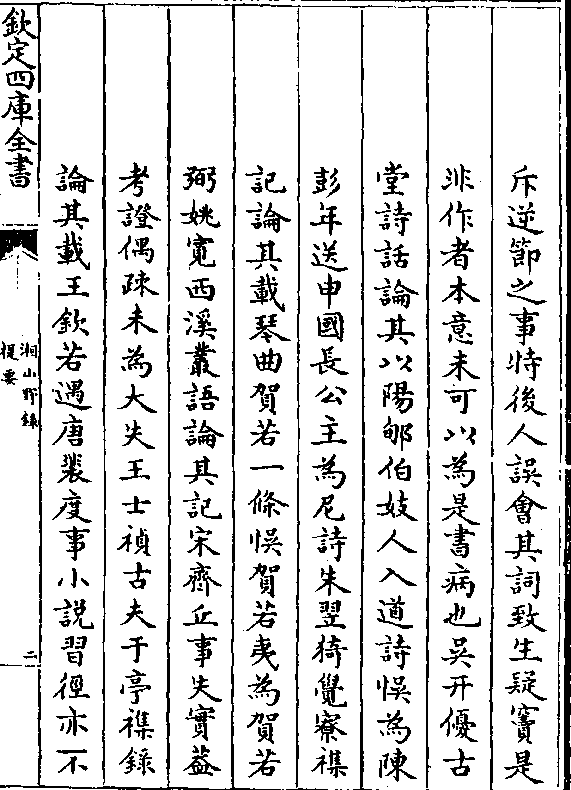 斥逆節之事特後人誤會其詞致生疑竇是
非作者本意未可以為是書病也吳幵優古
堂詩話論其以陽郇伯妓人入道詩悞為陳
彭年送申國長公主為尼詩朱翌猗覺寮襍
記論其載琴曲賀若一條悞賀若夷為賀若
弼姚寛西溪叢語論其記宋齊丘事失實葢
考證偶疎未為大失王士禎古夫于亭襍錄
論其載王欽若遇唐裴度事小說習徑亦不
欽定四庫全書
湘山野錄
提要
二